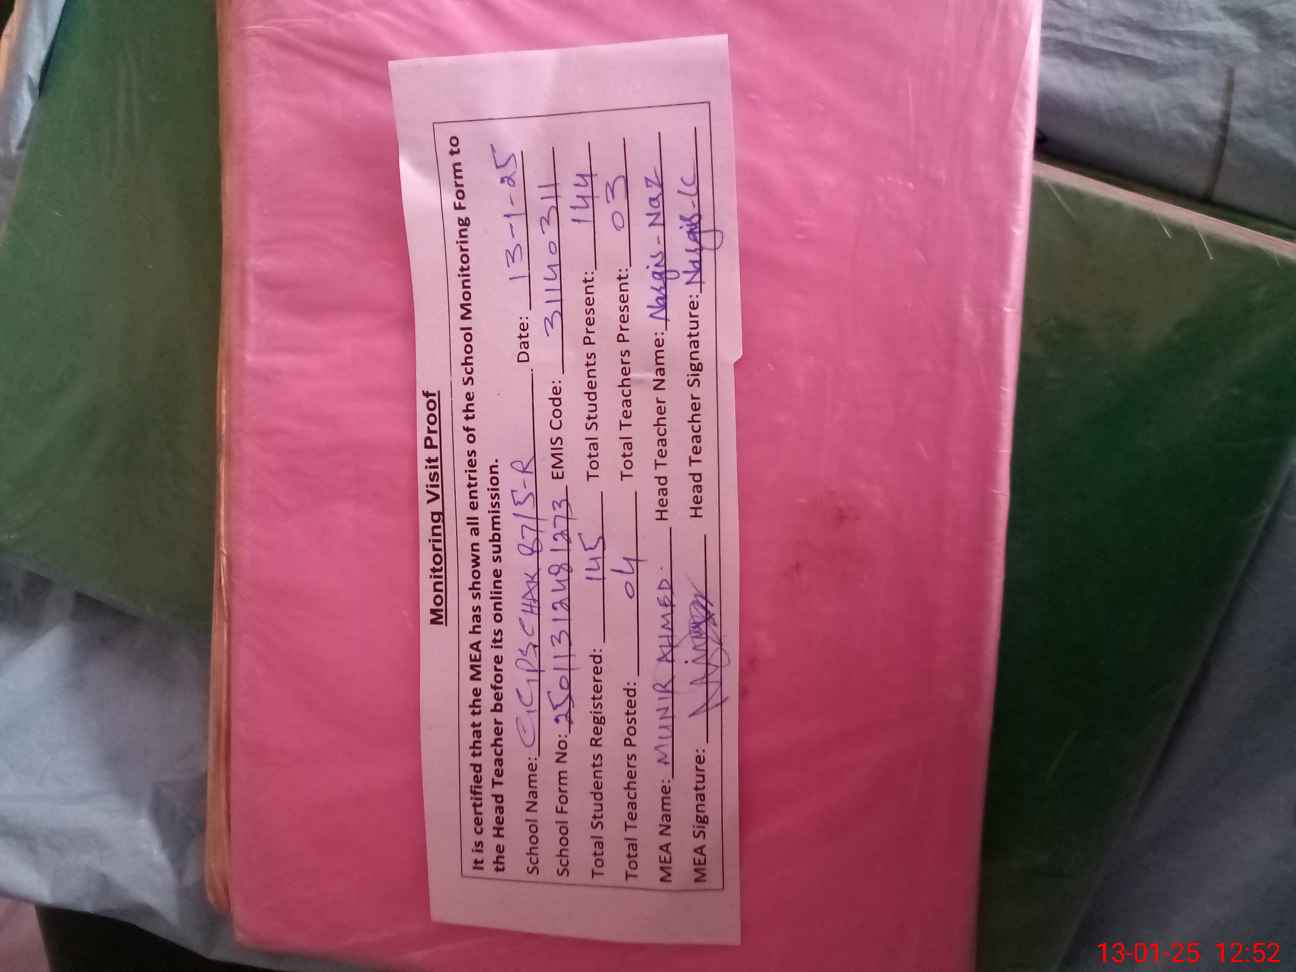 Monitoring Visit Proof
It is certified that the MEA has shown all entries of the School Monitoring Form to
the Head Teacher before its online submission.
School Name: GGPS CHAK 87/5-R Date: 13-1-25
School Form No: 25011312481273 EMIS Code: 31140311
Total Students Registered: 145 Total Students Present: 144
Total Teachers Posted: 04 Total Teachers Present: 03
MEA Name: MUNIR AHMED. Head Teacher Name: Nargis-Naz
MEA Signature: Head Teacher Signature: Nargis-
13-01-25 12:52